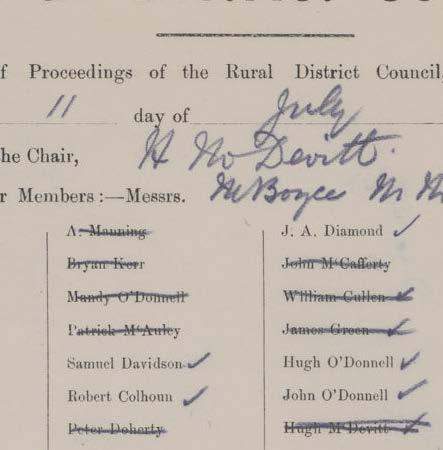 f Proceedings of the Rural District Council,
11 day of July
the Chair, H McDevitt.
r Members :—Messrs. McBoyce
A. Manning
Bryan Kerr
Mandy O'Donnell
Patrick McAuley
Samuel Davidson ✓
Robert Colhoun ✓
Peter Doherty
J. A. Diamond ✓
John McCafferty
William Cullen ✓
James Green ✓
Hugh O'Donnell ✓
John O'Donnell ✓
Hugh McDevitt ✓